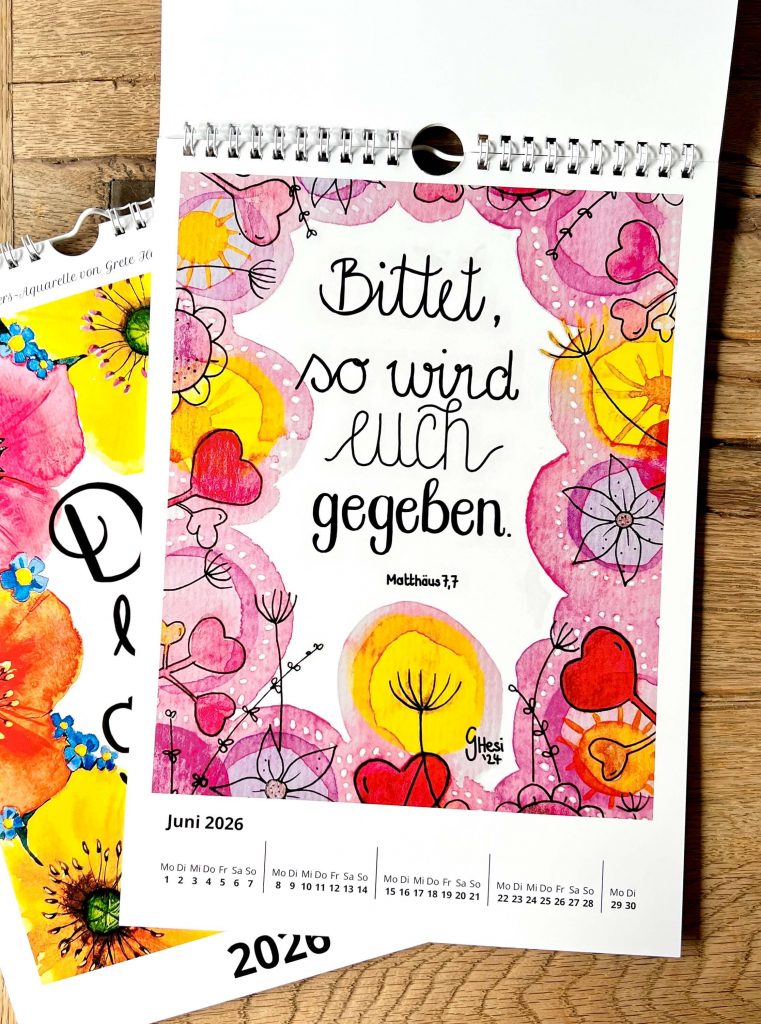 Bittet,
so wird
euch
gegeben.
Matthäus 7,7
GHesi
'24
Juni 2026
Mo Di Mi Do Fr Sa So Mo Di Mi Do Fr Sa So Mo Di Mi Do Fr Sa So Mo Di Mi Do Fr Sa So Mo Di
1 2 3 4 5 6 7 8 9 10 11 12 13 14 15 16 17 18 19 20 21 22 23 24 25 26 27 28 29 30
ers-Aquarelle von Grete
D
2026